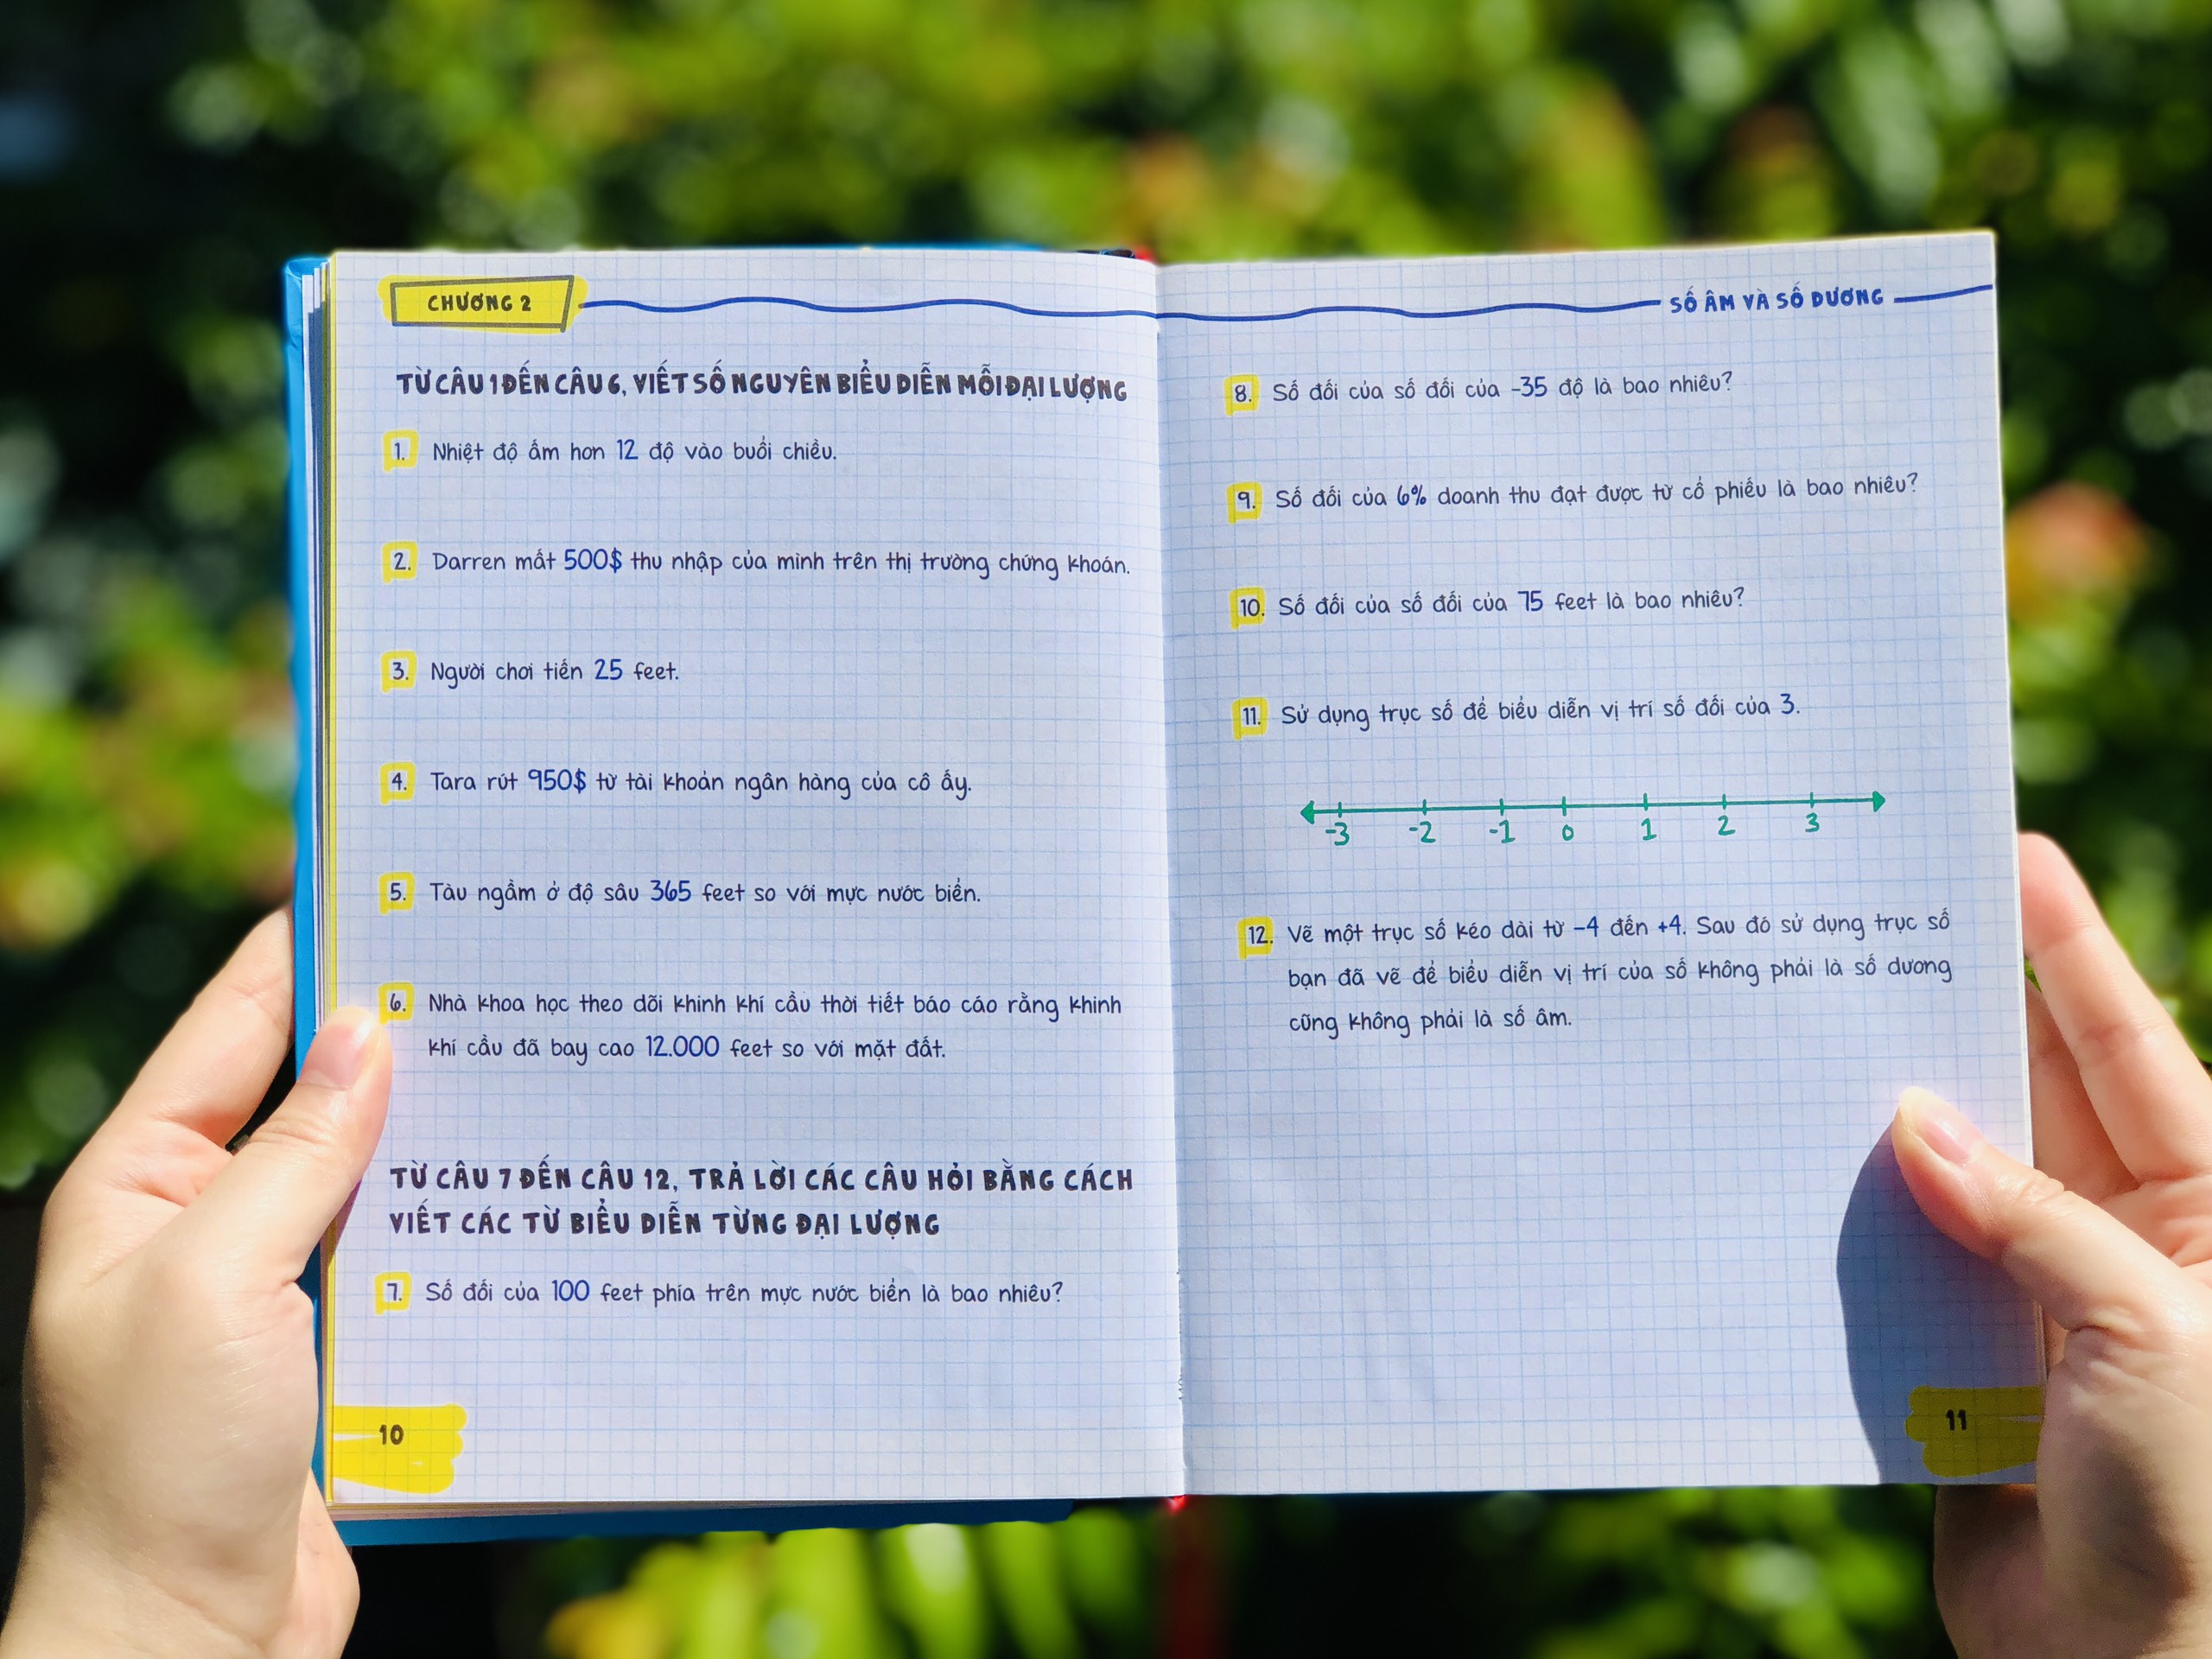 CHƯƠNG 2
TỪ CÂU 1 ĐẾN CÂU 6, VIẾT SỐ NGUYÊN BIỂU DIỄN MỖI ĐẠI LƯỢNG
1. Nhiệt độ ấm hơn 12 độ vào buổi chiều.
2. Darren mất 500$ thu nhập của mình trên thị trường chứng khoán.
3. Người chơi tiến 25 feet.
4. Tara rút 950$ từ tài khoản ngân hàng của cô ấy.
5. Tàu ngầm ở độ sâu 365 feet so với mực nước biển.
6. Nhà khoa học theo dõi khinh khí cầu thời tiết báo cáo rằng khinh
khí cầu đã bay cao 12.000 feet so với mặt đất.
TỪ CÂU 7 ĐẾN CÂU 12, TRẢ LỜI CÁC CÂU HỎI BẰNG CÁCH
VIẾT CÁC TỪ BIỂU DIỄN TỪNG ĐẠI LƯỢNG
7. Số đối của 100 feet phía trên mực nước biển là bao nhiêu?
10
SỐ ÂM VÀ SỐ DƯƠNG
8. Số đối của số đối của -35 độ là bao nhiêu?
9. Số đối của 6% doanh thu đạt được từ cổ phiếu là bao nhiêu?
10. Số đối của số đối của 75 feet là bao nhiêu?
11. Sử dụng trục số để biểu diễn vị trí số đối của 3.
-3 -2 -1 0 1 2 3
12. Vẽ một trục số kéo dài từ -4 đến +4. Sau đó sử dụng trục số
bạn đã vẽ để biểu diễn vị trí của số không phải là số dương
cũng không phải là số âm.
11